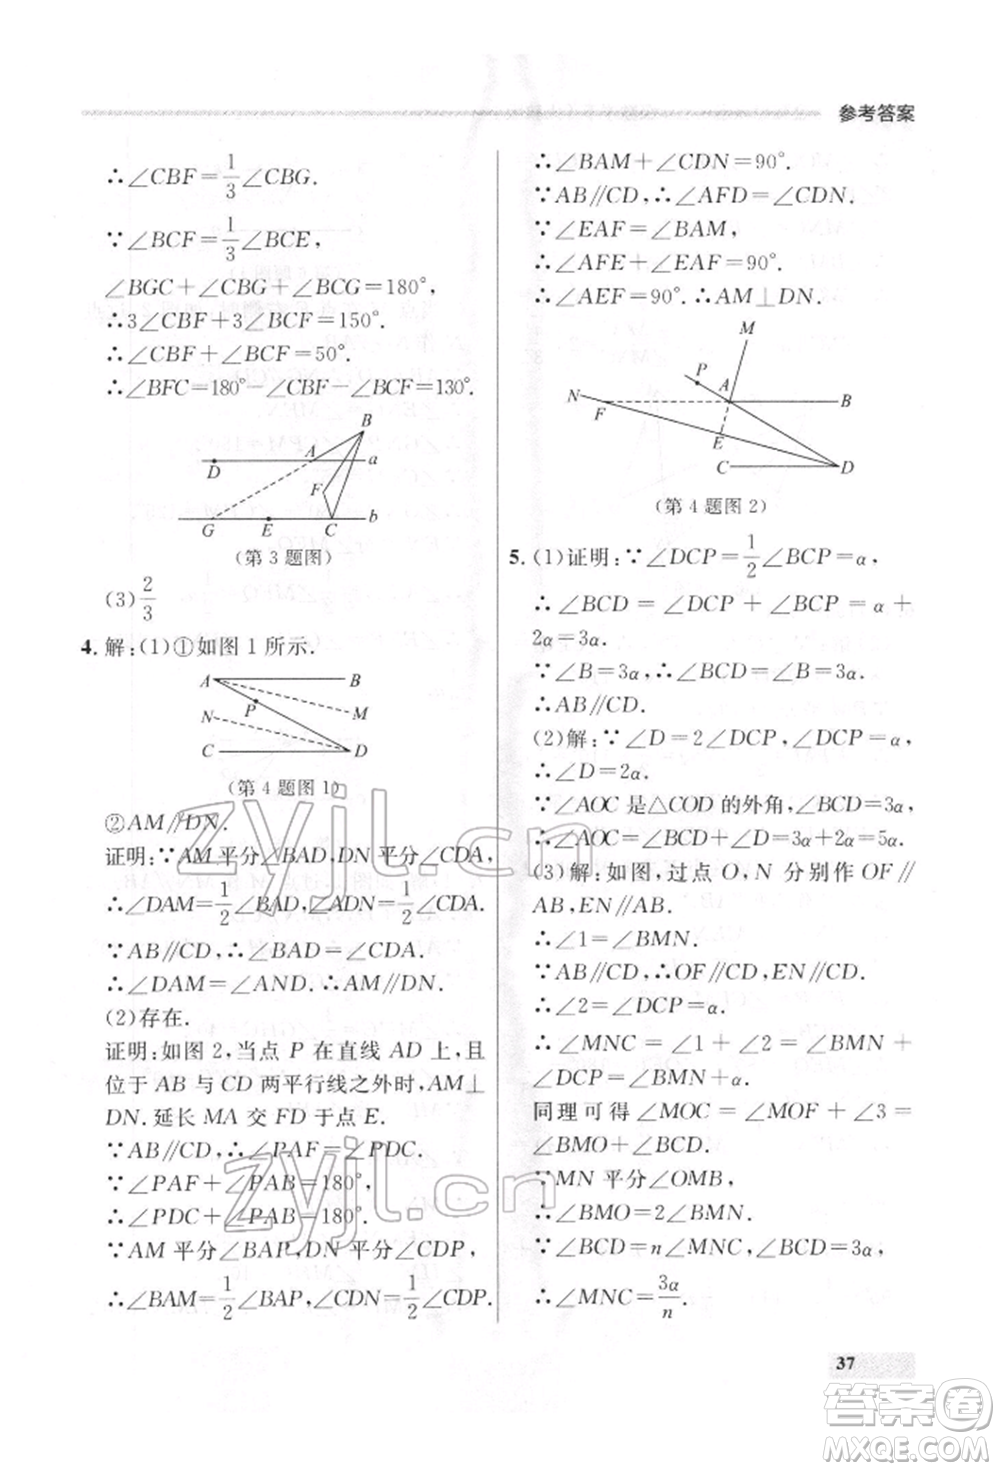 参考答案
∴∠CBF=1/3∠CBG.
∵∠BCF=1/3∠BCE,
∠BGC+∠CBG+∠BCG=180°,
∴3∠CBF+3∠BCF=150°.
∴∠CBF+∠BCF=50°.
∴∠BFC=180°-∠CBF-∠BCF=130°.
B
D A a
F
G E C b
(第 3 题图)
(3) 2/3
4. 解:(1)①如图 1 所示.
A B
P M
N
C D
(第 4 题图 1)
②AM∥DN.
证明:∵AM 平分∠BAD,DN 平分∠CDA,
∴∠DAM=1/2∠BAD,∠ADN=1/2∠CDA.
∵AB∥CD,∴∠BAD=∠CDA.
∴∠DAM=∠AND.∴AM∥DN.
(2)存在.
证明:如图 2,当点 P 在直线 AD 上,且
位于 AB 与 CD 两平行线之外时,AM⊥
DN.延长 MA 交 FD 于点 E.
∵AB∥CD,∴∠PAF=∠PDC.
∵∠PAF+∠PAB=180°,
∴∠PDC+∠PAB=180°.
∵AM 平分∠BAP,DN 平分∠CDP,
∴∠BAM=1/2∠BAP,∠CDN=1/2∠CDP.
∴∠BAM+∠CDN=90°.
∵AB∥CD,∴∠AFD=∠CDN.
∵∠EAF=∠BAM,
∴∠AFE+∠EAF=90°.
∴∠AEF=90°.∴AM⊥DN.
M
P
N F A B
E
C D
(第 4 题图 2)
5. (1)证明:∵∠DCP=1/2∠BCP=α,
∴∠BCD=∠DCP+∠BCP=α+
2α=3α.
∵∠B=3α,∴∠BCD=∠B=3α.
∴AB∥CD.
(2)解:∵∠D=2∠DCP,∠DCP=α,
∴∠D=2α.
∵∠AOC 是△COD 的外角,∠BCD=3α,
∴∠AOC=∠BCD+∠D=3α+2α=5α.
(3)解:如图,过点 O,N 分别作 OF∥
AB,EN∥AB.
∴∠1=∠BMN.
∵AB∥CD,∴OF∥CD,EN∥CD.
∴∠2=∠DCP=α.
∴∠MNC=∠1+∠2=∠BMN+α.
同理可得∠MOC=∠MOF+∠3=
∠BMO+∠BCD.
∵MN 平分∠OMB,
∴∠BMO=2∠BMN.
∵∠BCD=n∠MNC,∠BCD=3α,
∴∠MNC=3α/n.
37
zyjl.cn
zyjl.cn
答案圈
MXQE.COM